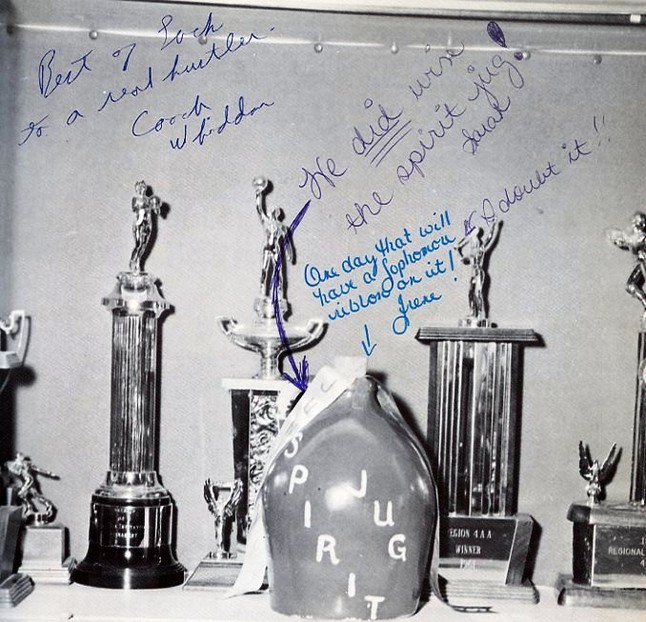 Best of Luck
to a real hustler.
Coach
Whiddon
We did win
the spirit jug!
Sarah
I doubt it!!
One day that will
have a Sophomore
ribbon on it!
Irene
SPIRIT
JUG
REGION 4 A A
WINNER
REGIONAL